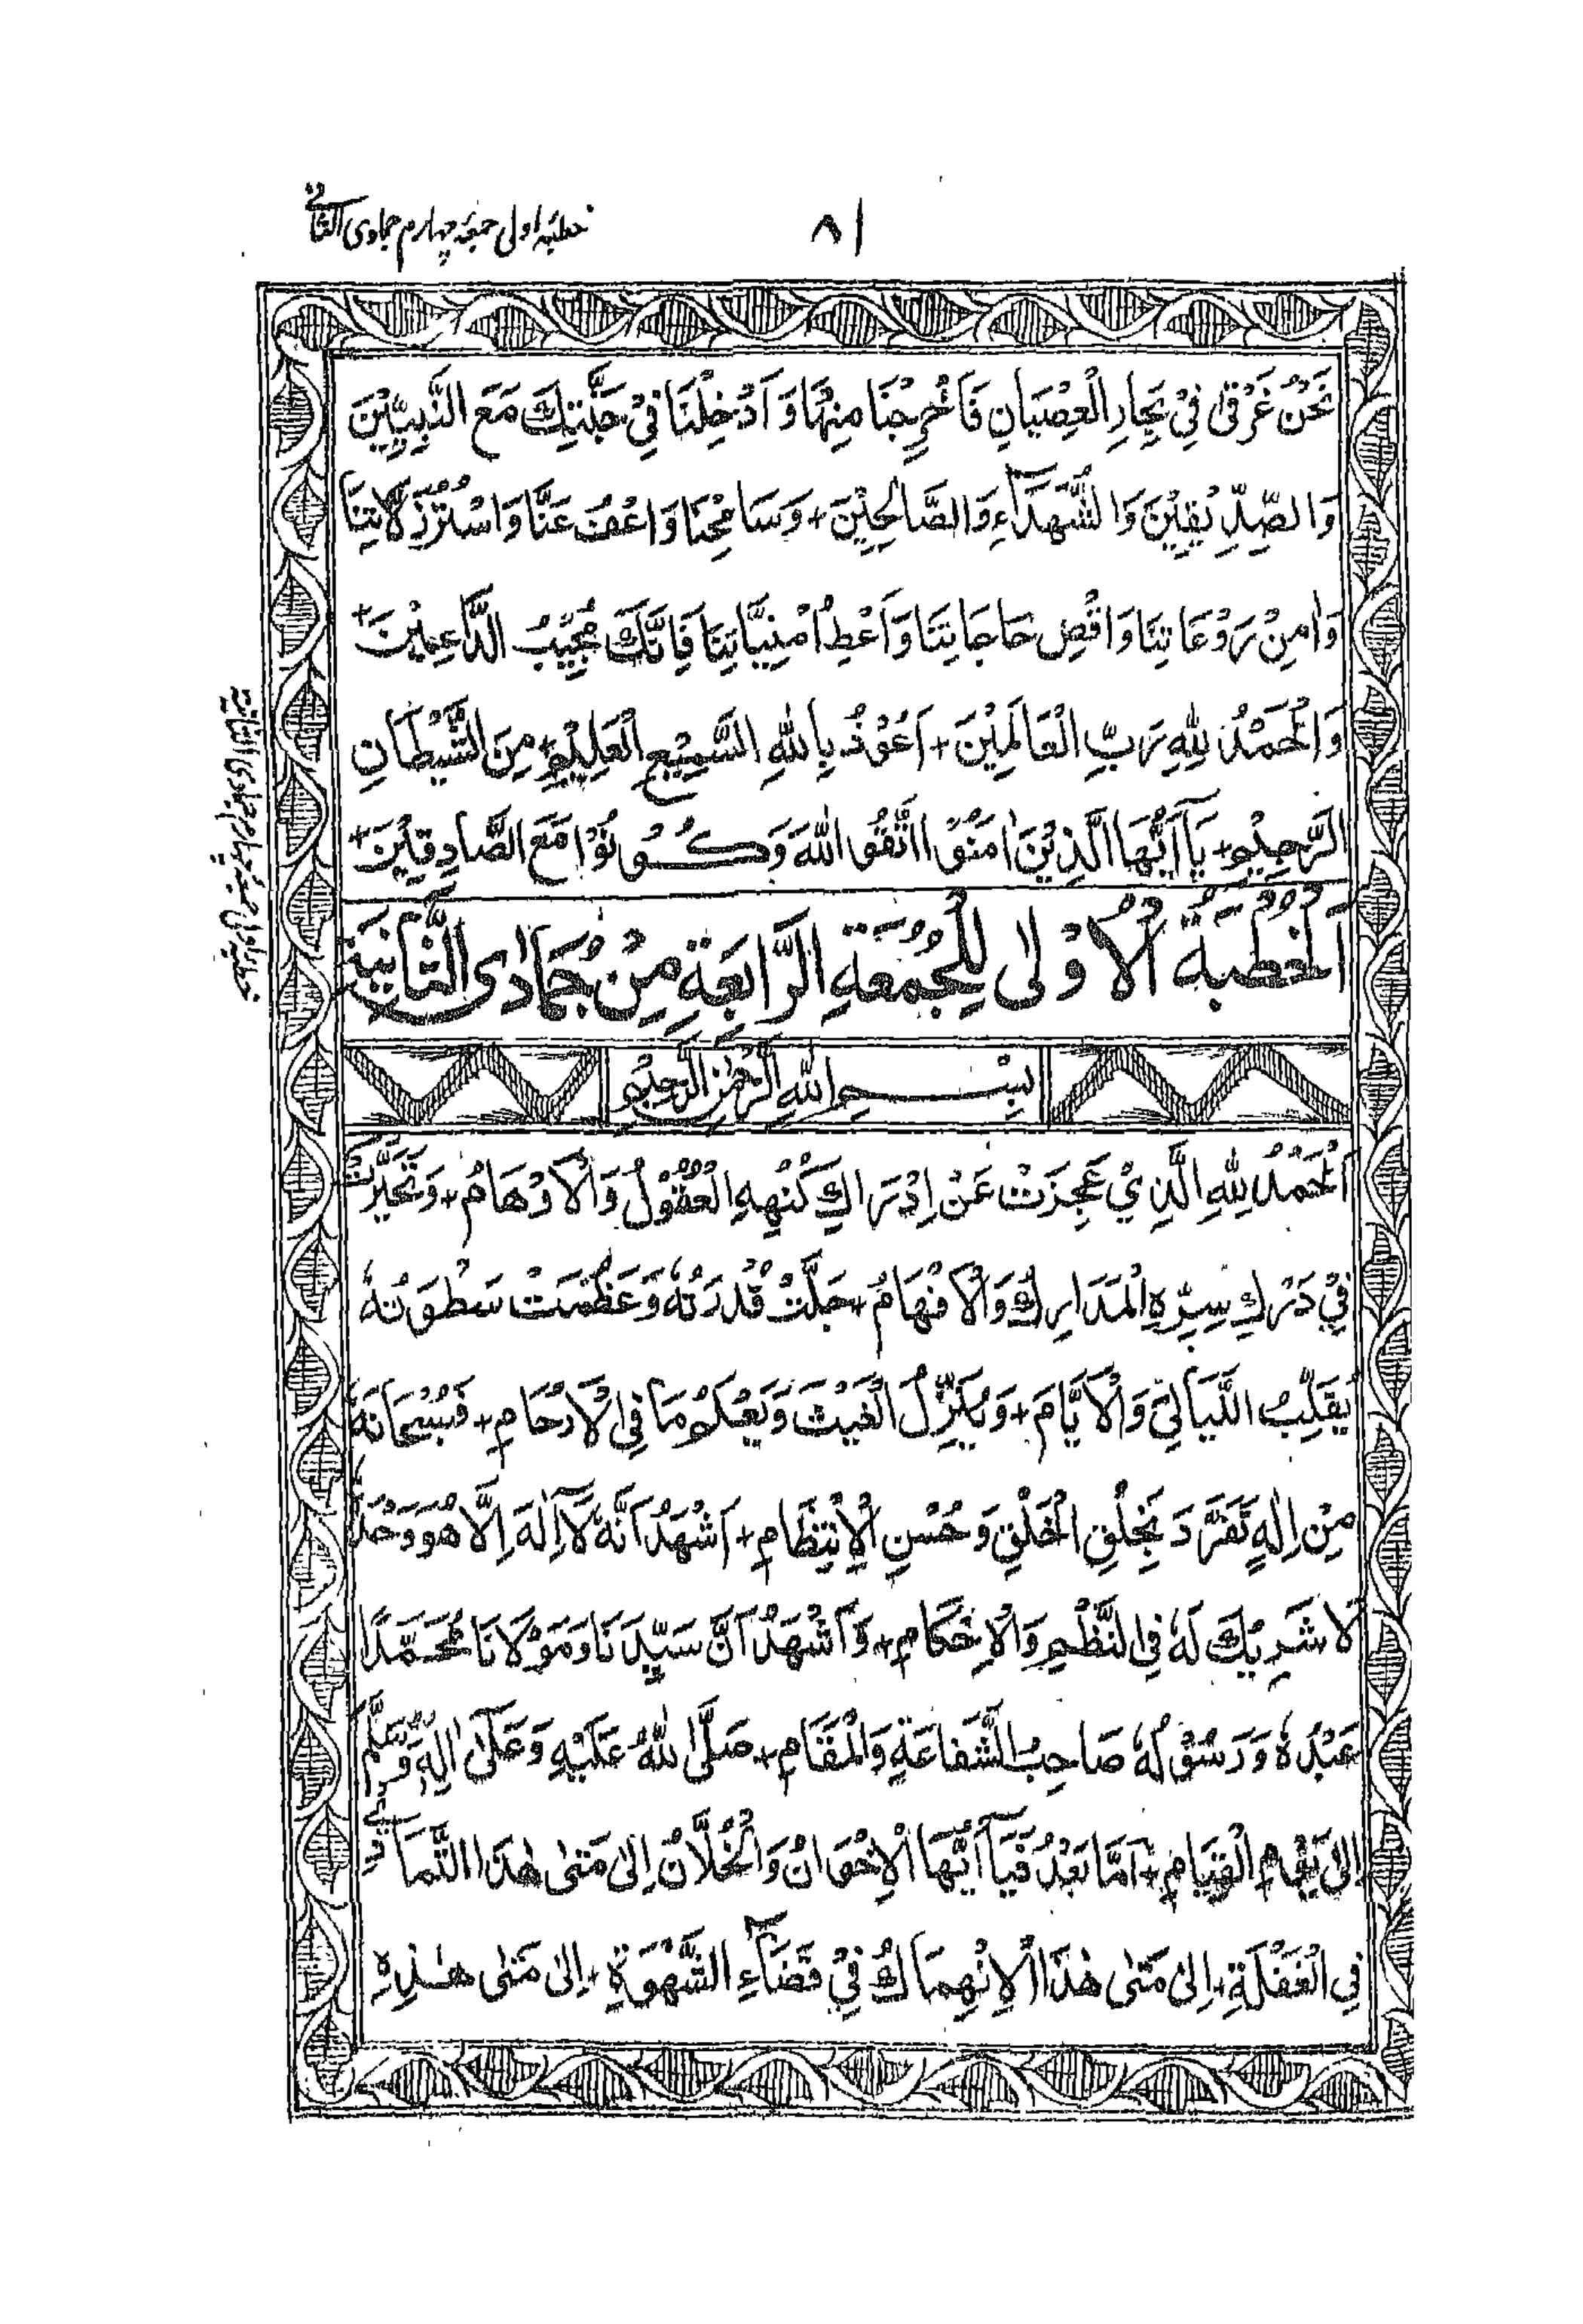 ٨١
خطبہ اولی جمعہ چہارم جمادی الثانی
نَحْنُ غَرْقٰى فِيْ بِحَارِ الْعِصْيَانِ فَاَخْرِجْنَا مِنْهَا وَاَدْخِلْنَا فِيْ جَنَّتِكَ مَعَ النَّبِيِّيْنَ
وَالصِّدِّيْقِيْنَ وَالشُّهَدَآءِ وَالصَّالِحِيْنَ + وَسَامِحْنَا وَاعْفُ عَنَّا وَاسْتُرْ زَلَّاتِنَا
وَاٰمِنْ رَوْعَاتِنَا وَاقْضِ حَاجَاتِنَا وَاَعْطِ اُمْنِيَّاتِنَا فَاِنَّكَ مُجِيْبُ الدَّاعِيْنَ +
وَالْحَمْدُ لِلّٰهِ رَبِّ الْعَالَمِيْنَ + اَعُوْذُ بِاللّٰهِ السَّمِيْعِ الْعَلِيْمِ + مِنَ الشَّيْطَانِ
الرَّجِيْمِ + يَآ اَيُّهَا الَّذِيْنَ اٰمَنُوا اتَّقُوا اللّٰهَ وَكُوْنُوْا مَعَ الصَّادِقِيْنَ +
اَلْخُطْبَةُ الْاُوْلٰى لِلْجُمُعَةِ الرَّابِعَةِ مِنْ جُمَادَى الثَّانِيَةِ
بِسْمِ اللّٰهِ الرَّحْمٰنِ الرَّحِيْمِ
اَلْحَمْدُ لِلّٰهِ الَّذِيْ عَجِزَتْ عَنْ اِدْرَاكِ كُنْهِهِ الْعُقُوْلُ وَالْاَوْهَامُ + وَتَحَيَّرَتْ
فِيْ دَرْكِ سِرِّهِ الْمَدَارِكُ وَالْاَفْهَامُ + جَلَّتْ قُدْرَتُهٗ وَعَظُمَتْ سَطْوَتُهٗ
يُقَلِّبُ اللَّيَالِيَ وَالْاَيَّامَ + وَيُنَزِّلُ الْغَيْثَ وَيَعْلَمُ مَا فِي الْاَرْحَامِ + فَسُبْحَانَهٗ
مِنْ اِلٰهٍ تَفَرَّدَ بِخَلْقِ الْخَلْقِ وَحُسْنِ الْاِنْتِظَامِ + اَشْهَدُ اَنَّهٗ لَآ اِلٰهَ اِلَّا هُوَ وَحْدَهٗ
لَا شَرِيْكَ لَهٗ فِي النَّظْمِ وَالْاِحْكَامِ + وَاَشْهَدُ اَنَّ سَيِّدَنَا وَمَوْلَانَا مُحَمَّدًا
عَبْدُهٗ وَرَسُوْلُهٗ صَاحِبُ الشَّفَاعَةِ وَالْمَقَامِ + صَلَّى اللّٰهُ عَلَيْهِ وَعَلٰى اٰلِهٖ وَسَلَّمَ
اِلٰى يَوْمِ الْقِيَامِ + اَمَّا بَعْدُ فَيَآ اَيُّهَا الْاِخْوَانُ وَالْخُلَّانُ اِلٰى مَتٰى هٰذَا التَّمَادِيْ
فِي الْغَفْلَةِ + اِلٰى مَتٰى هٰذَا الْاِنْهِمَاكُ فِيْ قَضَآءِ الشَّهْوَةِ + اِلٰى مَتٰى هٰذِهِ